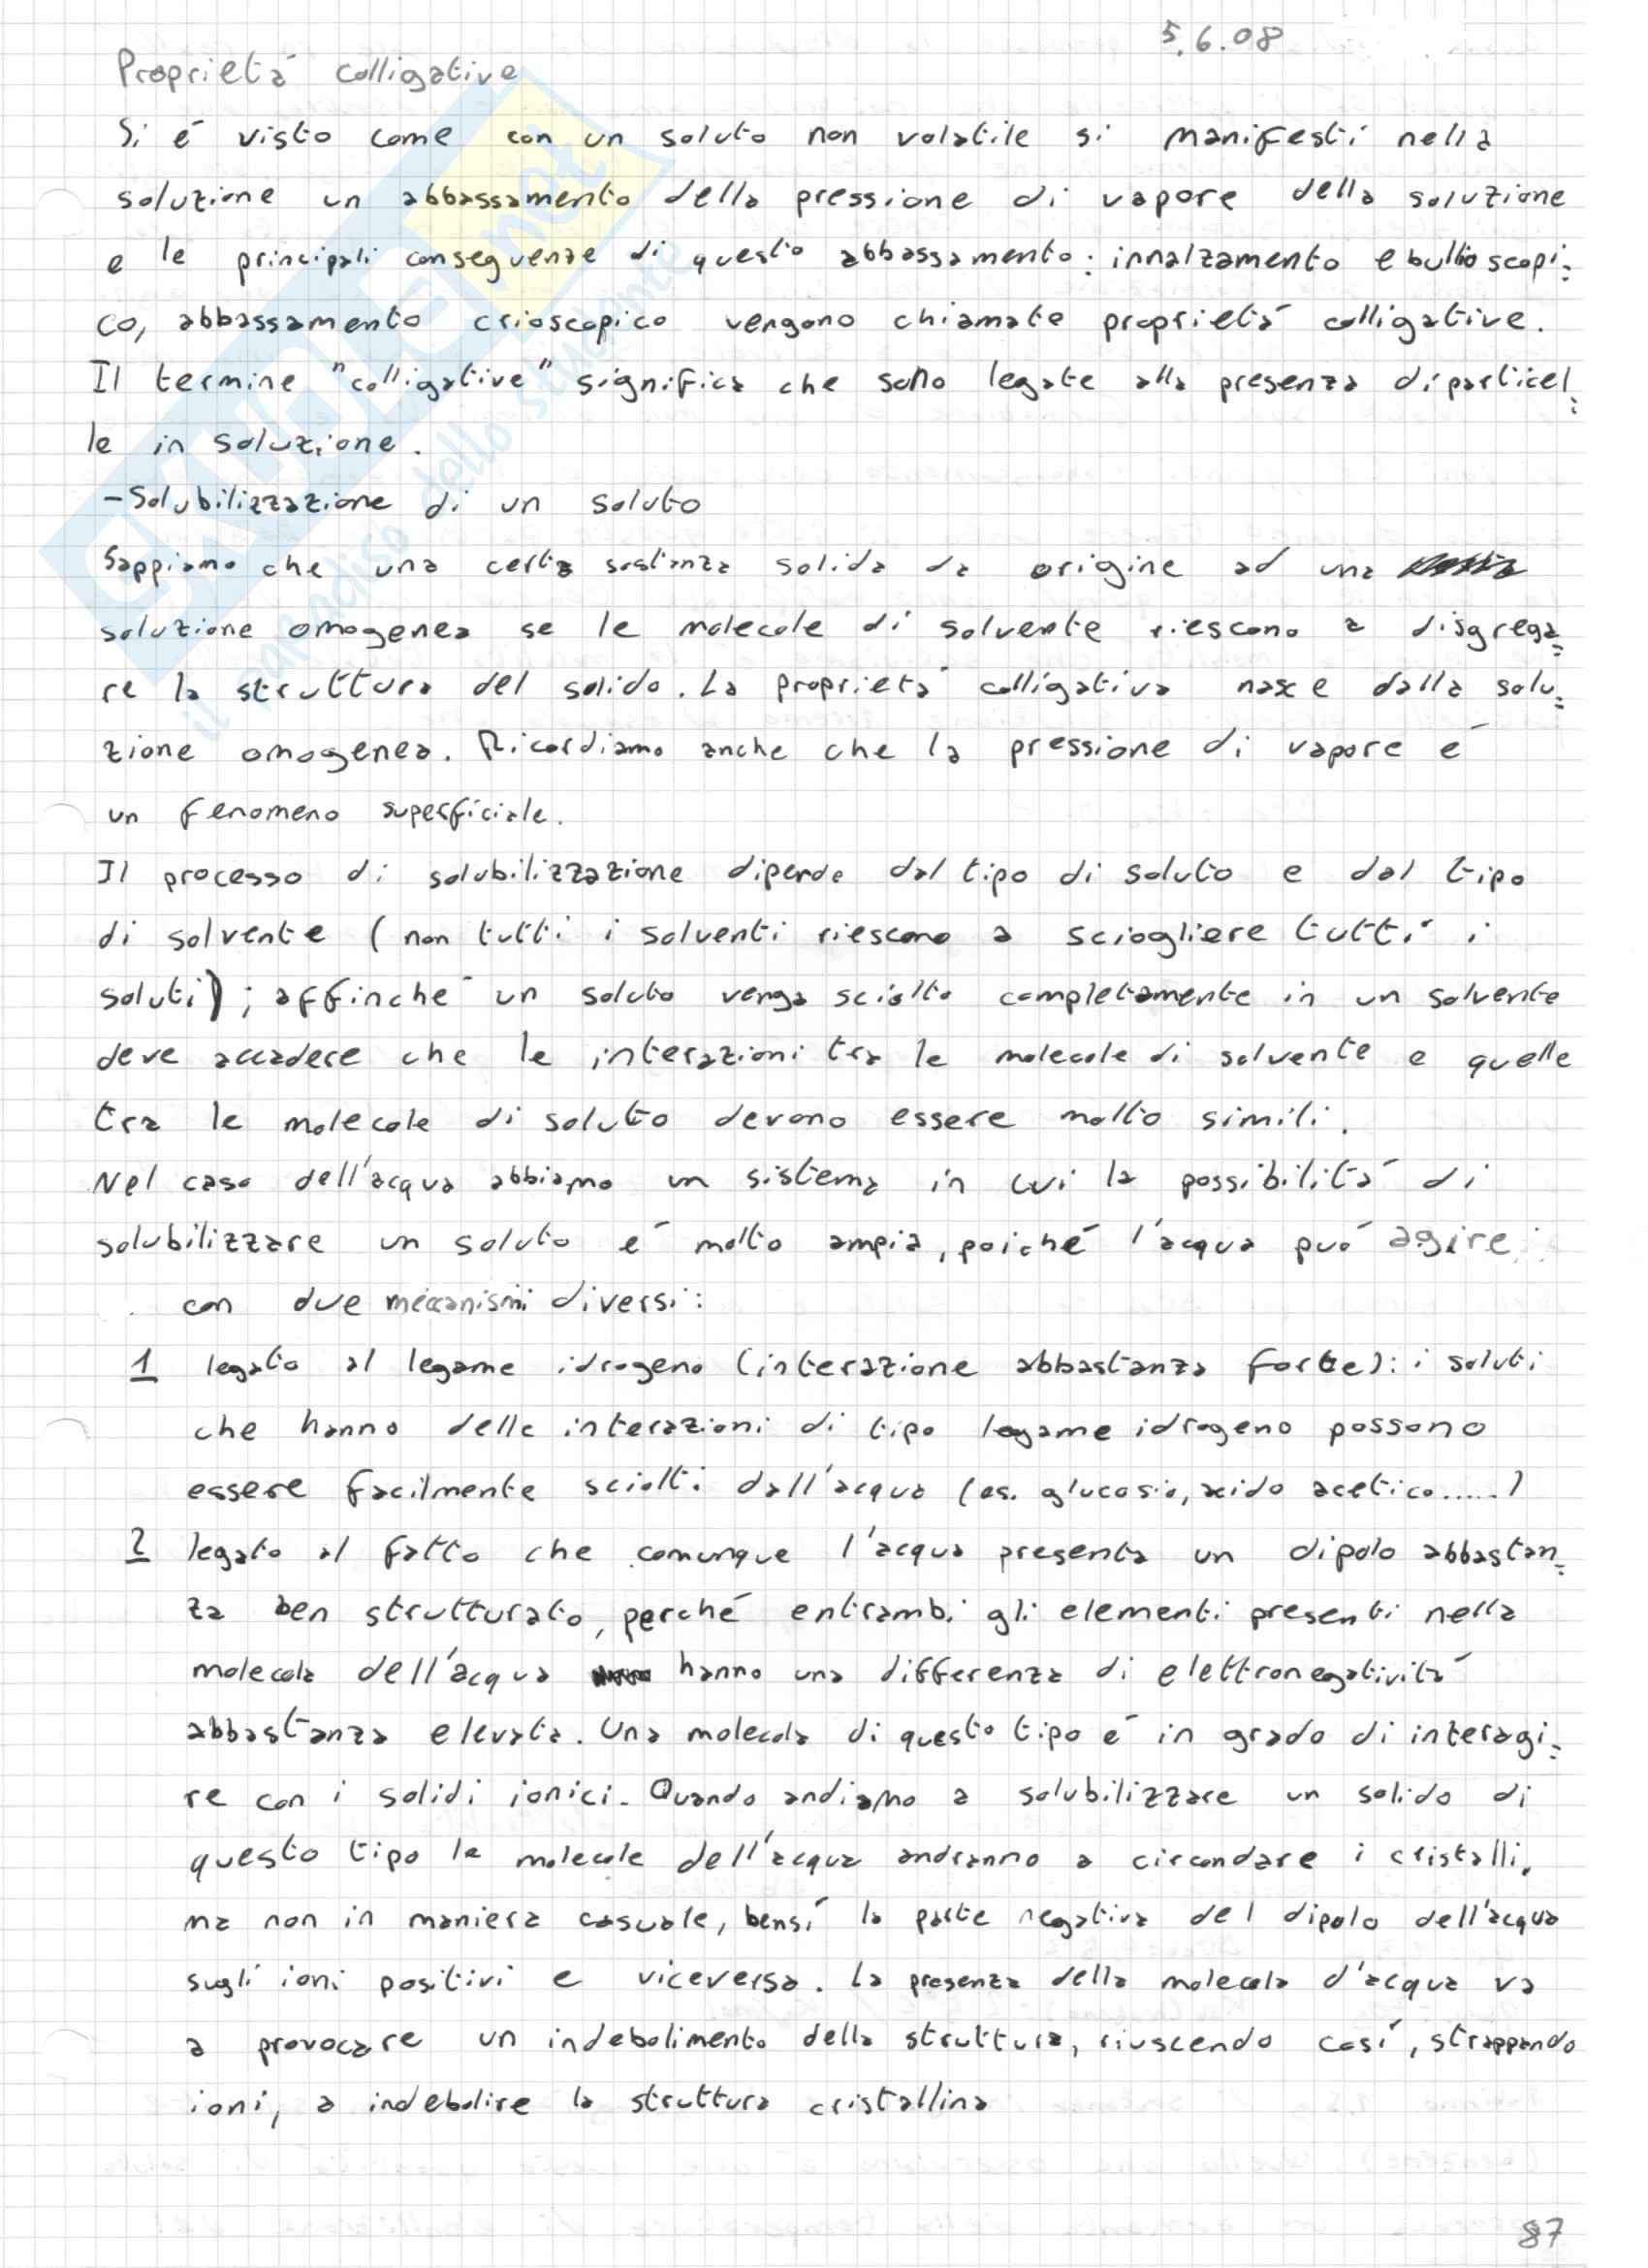 5.6.08
Proprietá colligative
Si é visto come con un soluto non volatile si manifesti nella
soluzione un abbassamento della pressione di vapore della soluzione
e le principali conseguenze di questo abbassamento: innalzamento ebullioscopi=
co, abbassamento crioscopico vengono chiamate proprietá colligative.
Il termine "colligative" significa che sono legate alla presenza di particel=
le in soluzione.
- Solubilizzazione di un soluto
Sappiamo che una certa sostanza solida da origine ad una
soluzione omogenea se le molecole di solvente riescono a disgrega=
re la struttura del solido. La proprietá colligativa nasce dalla solu=
zione omogenea. Ricordiamo anche che la pressione di vapore é
un fenomeno superficiale.
Il processo di solubilizzazione dipende dal tipo di soluto e dal tipo
di solvente (non tutti i solventi riescono a sciogliere tutti i
soluti); affinché un soluto venga sciolto completamente in un solvente
deve accadere che le interazioni tra le molecole di solvente e quelle
tra le molecole di soluto devono essere molto simili.
Nel caso dell'acqua abbiamo un sistema in cui la possibilitá di
solubilizzare un soluto é molto ampia, poiché l'acqua puó agire
con due meccanismi diversi:
1 legato al legame idrogeno (interazione abbastanza forte): i soluti
che hanno delle interazioni di tipo legame idrogeno possono
essere facilmente sciolti dall'acqua (es. glucosio, acido acetico.....)
2 legato al fatto che comunque l'acqua presenta un dipolo abbastan=
za ben strutturato, perché entrambi gli elementi presenti nella
molecola dell'acqua hanno una differenza di elettronegativitá
abbastanza elevata. Una molecola di questo tipo é in grado di interagi=
re con i solidi ionici. Quando andiamo a solubilizzare un solido di
questo tipo le molecole dell'acqua andranno a circondare i cristalli,
ma non in maniera casuale, bensí la parte negativa del dipolo dell'acqua
sugli ioni positivi e viceversa. La presenza della molecola d'acqua va
a provocare un indebolimento della struttura, riuscendo cosí, strappando
ioni, a indebolire la struttura cristallina
87
SKUOLA.net
il paradiso dello studente